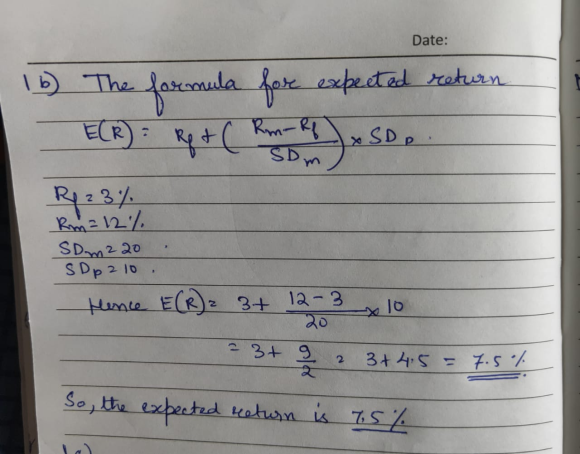 Date:
1b) The formula for expected return
E(R) = Rf + (Rm-Rf / SDm) x SDp.
Rf = 3%.
Rm = 12%.
SDm = 20.
SDp = 10.
Hence E(R) = 3 + 12-3 / 20 x 10
= 3 + 9/2 = 3+4.5 = 7.5%
So, the expected return is 7.5%